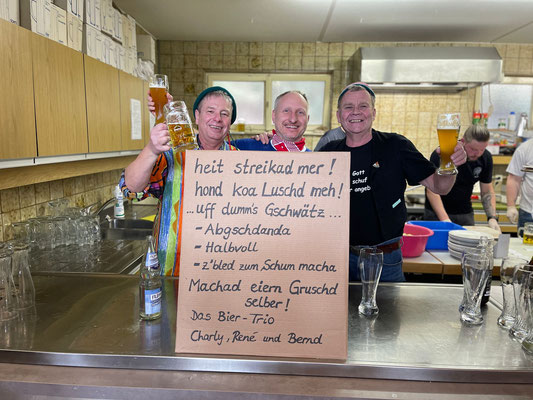 heit streikad mer!
hond koa Luschd meh!
...uff dumm's Gschwätz...
- Abgschdanda
- Halbvoll
- z'bled zum Schum macha
Machad eiern Gruschd
selber!
Das Bier-Trio
Charly, René und Bernd
Gott
schuf